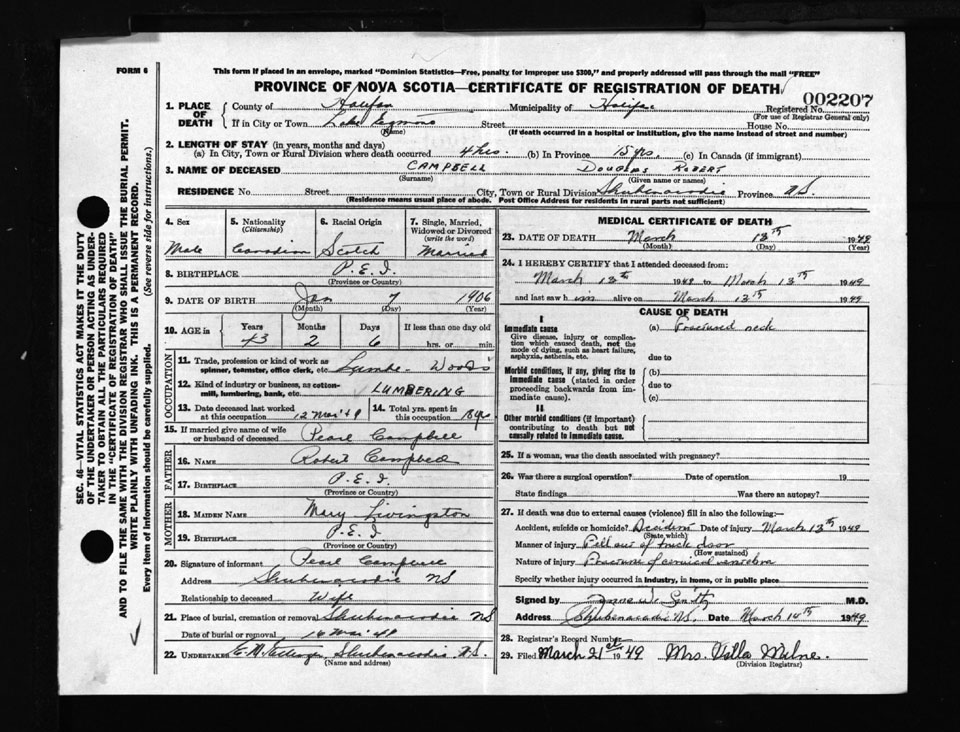 FORM 6
This form if placed in an envelope, marked "Dominion Statistics—Free, penalty for improper use $300," and properly addressed will pass through the mail "FREE"
PROVINCE OF NOVA SCOTIA—CERTIFICATE OF REGISTRATION OF DEATH
002207
1. PLACE OF DEATH
County of Halifax Municipality of Halifax Registered No.
(For use of Registrar General only)
If in City or Town Lake Street House No.
(Name) (If death occurred in a hospital or institution, give the name instead of street and number)
2. LENGTH OF STAY (in years, months and days)
(a) In City, Town or Rural Division where death occurred 4 hrs. (b) In Province 15 yrs. (c) In Canada (if immigrant)
3. NAME OF DECEASED CAMPBELL DOUGLAS ROBERT
(Surname) (Given name or names)
RESIDENCE No. Street City, Town or Rural Division Shubenacadie Province N.S.
(Residence means usual place of abode. Post Office Address for residents in rural parts not sufficient)
4. Sex Male
5. Nationality (Citizenship) Canadian
6. Racial Origin Scotch
7. Single, Married, Widowed or Divorced (write the word) Married
8. BIRTHPLACE P.E.I.
(Province or Country)
9. DATE OF BIRTH Jan 7 1906
(Month) (Day) (Year)
10. AGE in Years Months Days If less than one day old
43 2 6 hrs. or min.
OCCUPATION
11. Trade, profession or kind of work as spinner, teamster, office clerk, etc. Woods
12. Kind of industry or business, as cotton-mill, lumbering, bank, etc. LUMBERING
13. Date deceased last worked at this occupation 12 Mar '49
14. Total yrs. spent in this occupation 18 yrs.
15. If married give name of wife or husband of deceased Pearl Campbell
FATHER
16. NAME Robert Campbell
17. BIRTHPLACE P.E.I.
(Province or Country)
MOTHER
18. MAIDEN NAME Mary Livingston
19. BIRTHPLACE P.E.I.
(Province or Country)
20. Signature of informant Pearl Campbell
Address Shubenacadie NS
Relationship to deceased Wife
21. Place of burial, cremation or removal Shubenacadie NS
Date of burial or removal 16 Mar '49
22. UNDERTAKER Shubenacadie N.S.
(Name and address)
MEDICAL CERTIFICATE OF DEATH
23. DATE OF DEATH March 13th 1949
(Month) (Day) (Year)
24. I HEREBY CERTIFY that I attended deceased from:
March 13th 1949 to March 13th 1949
and last saw him alive on March 13th 1949
CAUSE OF DEATH
I
Immediate cause (a) Fractured neck
Give disease, injury or complication which caused death, not the mode of dying, such as heart failure, asphyxia, asthenia, etc.
due to
Morbid conditions, if any, giving rise to immediate cause (stated in order proceeding backwards from immediate cause).
(b)
due to
(c)
II
Other morbid conditions (if important) contributing to death but not causally related to immediate cause.
25. If a woman, was the death associated with pregnancy?
26. Was there a surgical operation? Date of operation 19
State findings Was there an autopsy?
27. If death was due to external causes (violence) fill in also the following:
Accident, suicide or homicide? Accident Date of injury March 13th 1949
(State which)
Manner of injury Fell out of truck door
(How sustained)
Nature of injury Fracture of cervical vertebra
Specify whether injury occurred in industry, in home, or in public place
Signed by Smith M.D.
Address Shubenacadie NS. Date March 14th 1949
28. Registrar's Record Number
29. Filed March 21st 1949 Mrs. Milne.
(Division Registrar)
SEC. 46—VITAL STATISTICS ACT MAKES IT THE DUTY
OF THE UNDERTAKER OR PERSON ACTING AS UNDER-
TAKER TO OBTAIN ALL THE PARTICULARS REQUIRED
IN THE "CERTIFICATE OF REGISTRATION OF DEATH"
AND TO FILE THE SAME WITH THE DIVISION REGISTRAR WHO SHALL ISSUE THE BURIAL PERMIT.
WRITE PLAINLY WITH UNFADING INK. THIS IS A PERMANENT RECORD.
Every item of information should be carefully supplied. (See reverse side for instructions.)